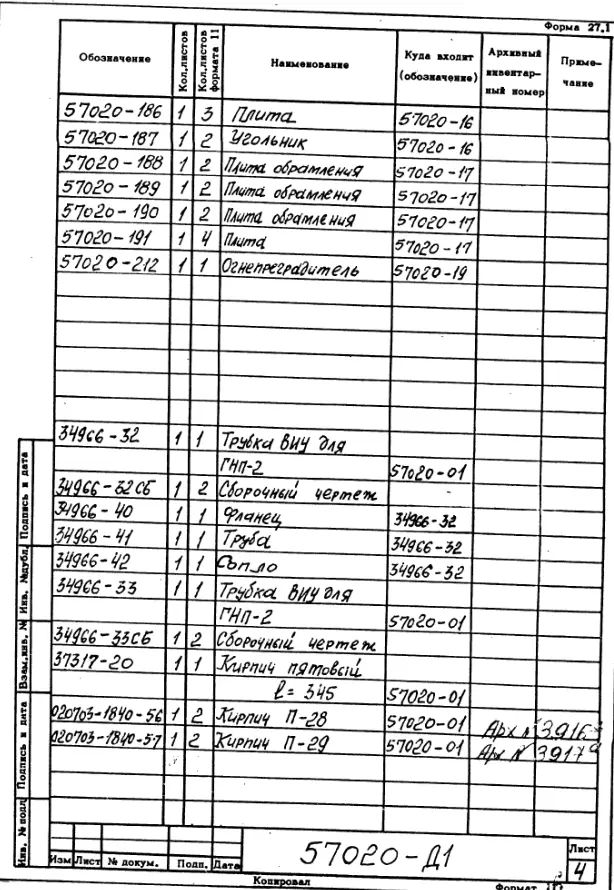 Форма 27.1
Обозначение Кол.листов Кол.листов формата 11 Наименование Куда входит (обозначение) Архивный инвентарный номер Примечание
57020-186 1 3 Плита 57020-16
57020-187 1 2 Угольник 57020-16
57020-188 1 2 Плита обрамления 57020-17
57020-189 1 2 Плита обрамления 57020-17
57020-190 1 2 Плита обрамления 57020-17
57020-191 1 4 Плита 57020-17
57020-212 1 1 Огнепреградитель 57020-19
34966-32 1 1 Трубка ВИУ для
ГНП-2 57020-01
34966-32СБ 1 2 Сборочный чертеж
34966-40 1 1 Фланец 34966-32
34966-41 1 1 Труба 34966-32
34966-42 1 1 Сопло 34966-32
34966-33 1 1 Трубка ВИУ для
ГНП-2 57020-01
34966-33СБ 1 2 Сборочный чертеж
37317-20 1 1 Кирпич пятовый
ℓ=345 57020-01
020703-1840-56 1 2 Кирпич П-28 57020-01 Арх №
020703-1840-57 1 2 Кирпич П-29 57020-01 Арх №
Инв. № подл. Подпись и дата Взам.инв. № Инв. № дубл. Подпись и дата
Изм Лист № докум. Подп. Дата
57020-Д1
Лист
4
Копировал
Формат